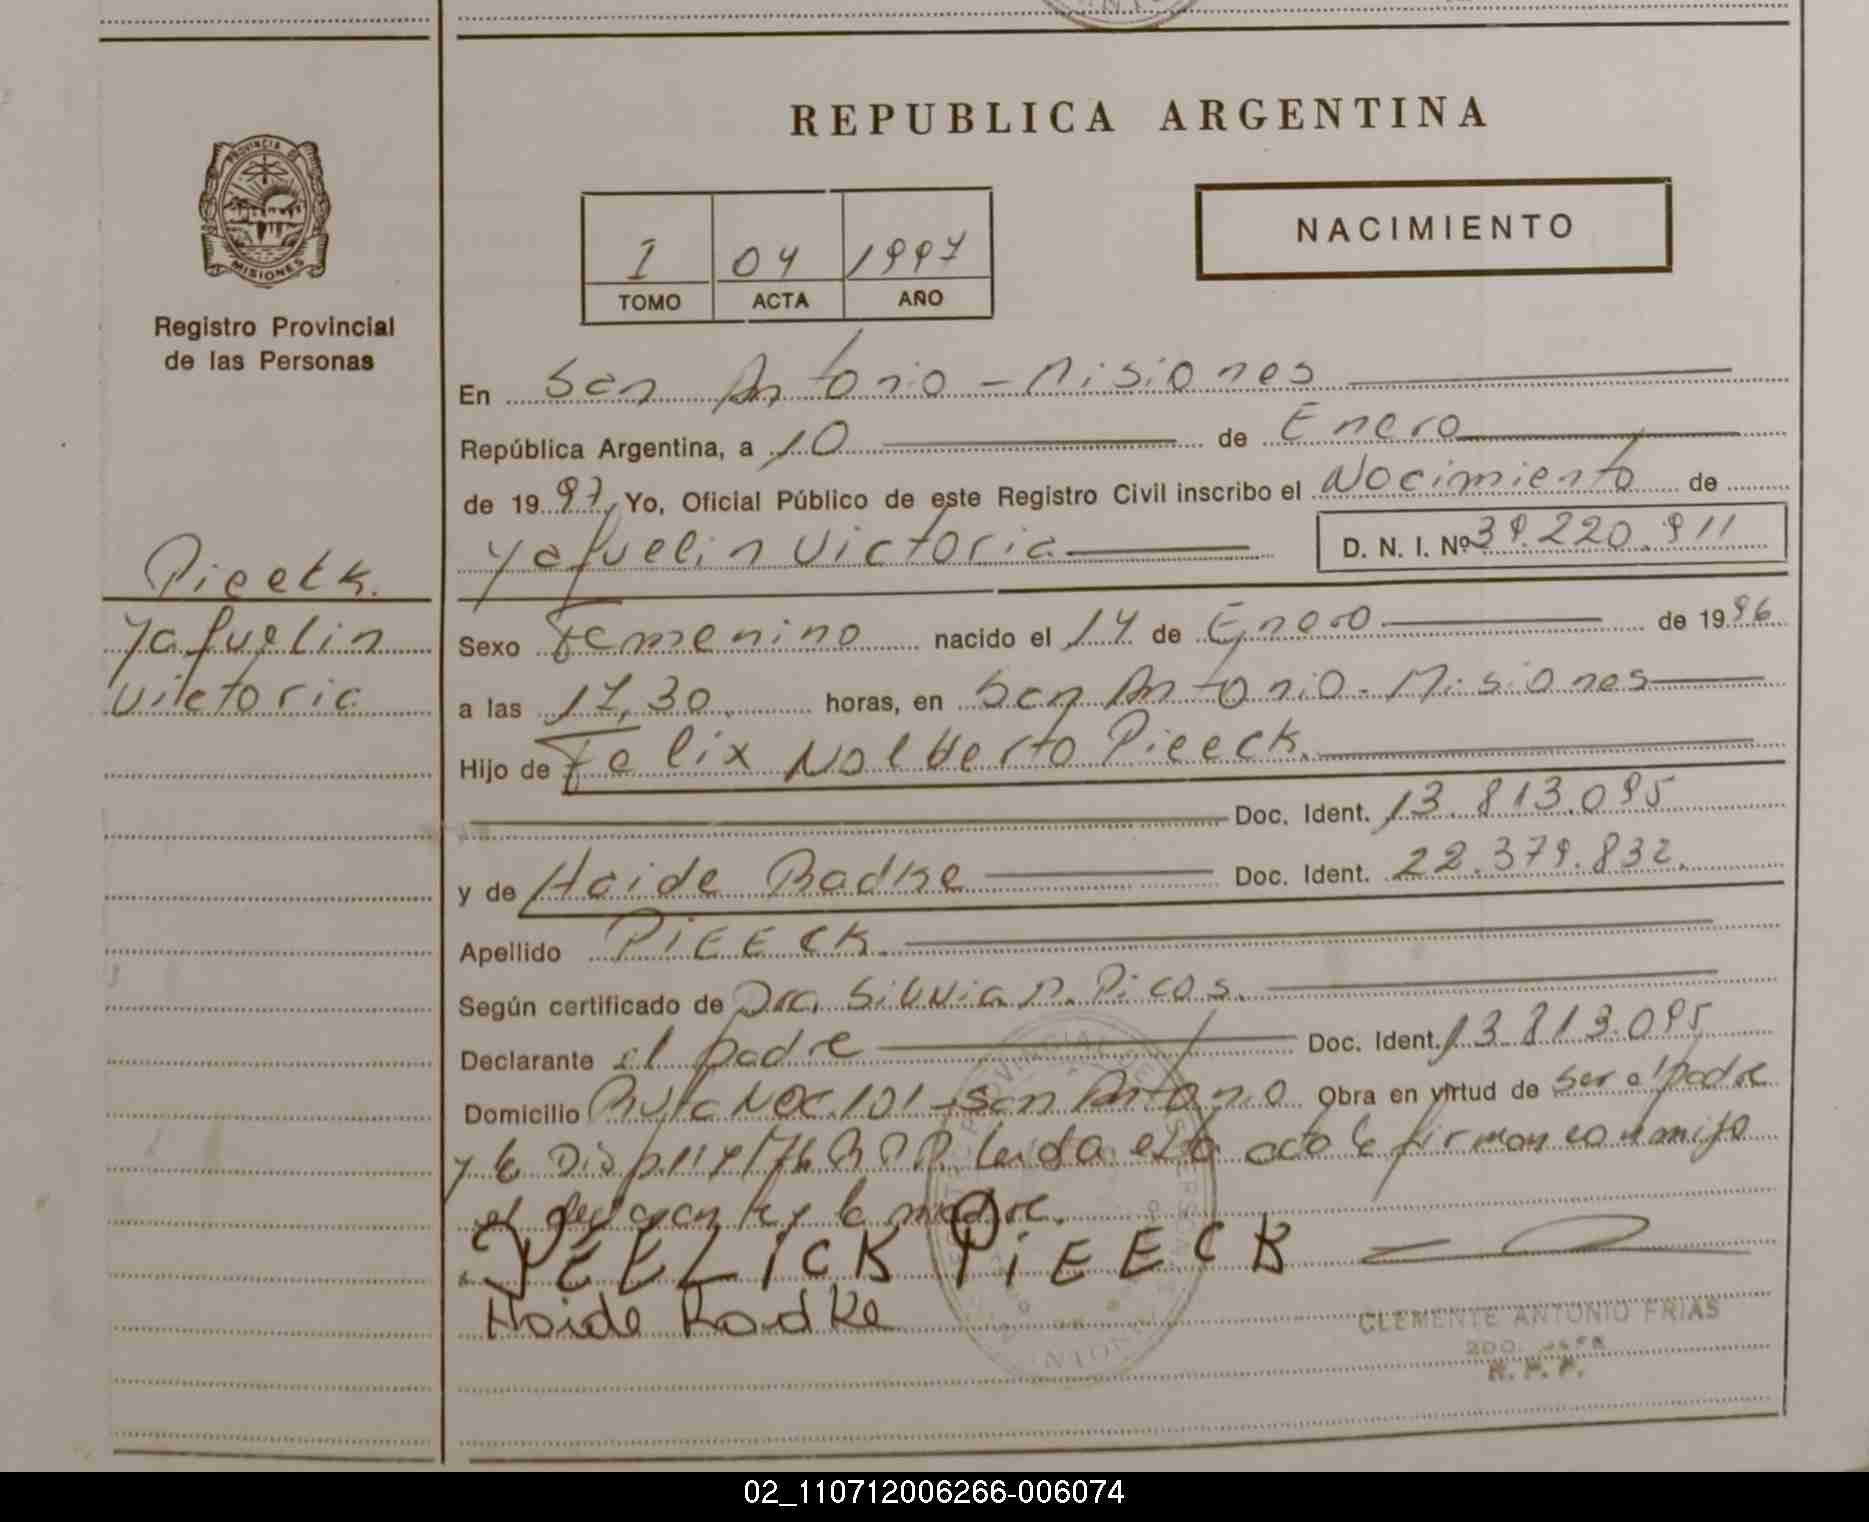 REPUBLICA ARGENTINA
PROVINCIA DE
MISIONES
Registro Provincial
de las Personas
I 04 1997
TOMO ACTA AÑO
NACIMIENTO
En San Antonio - Misiones
República Argentina, a 10 de Enero
de 1997, Yo, Oficial Público de este Registro Civil inscribo el Nacimiento de
Yaquelin Victoria D. N. I. Nº 39.220.911
Pieeck.
Yaquelin
Victoria
Sexo Femenino nacido el 14 de Enero de 1996
a las 17,30 horas, en San Antonio - Misiones
Hijo de Felix Nolberto Pieeck.
Doc. Ident. 13.813.095
y de Haide Radke Doc. Ident. 22.379.832.
Apellido PiEECK.
Según certificado de Dra. Silvia N. Picos.
Declarante el padre Doc. Ident. 13.813.095
Domicilio Ruta Nac. 101 - San Antonio Obra en virtud de ser el padre
y la Disp. 114/76 RPP. Leida esta acta la firman conmigo
el declarante y la madre.
FEELICK PiEECK
Haide Radke
CLEMENTE ANTONIO FRIAS
2DO. JEFE
R. P. P.
02_110712006266-006074